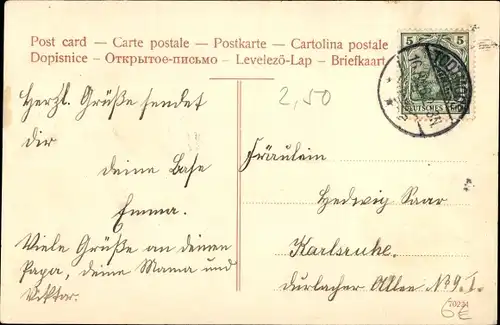 Post card – Carte postale – Postkarte – Cartolina postale
Dopisnice – Открытое-письмо – Levelező-Lap – Briefkaart
5 5
DEUTSCHES
2,50
Herzl. Grüße sendet
dir
deine Base
Emma.
Viele Grüße an deinen
Papa, deine Mama und
Viktor.
Fräulein
Hedwig Saar
Karlsruhe.
Durlacher Allee No 9. I.
70234
6€